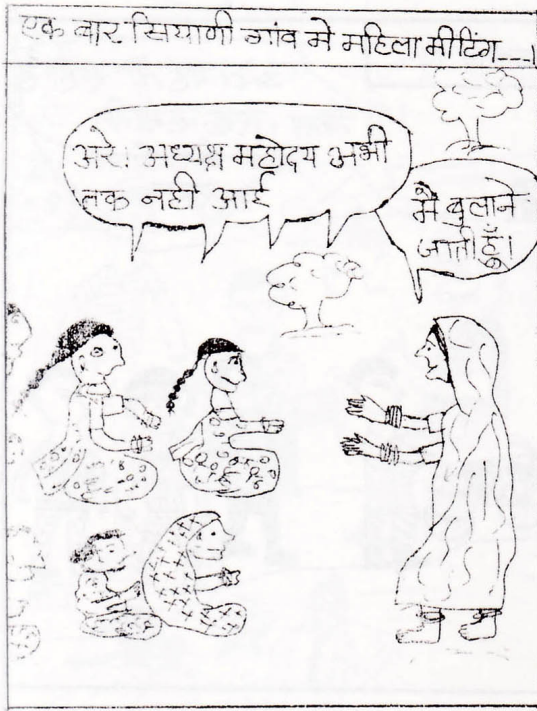 एक बार सियाणी गांव मे महिला मीटिंग---।
अरे। अध्यक्ष महोदय अभी
तक नही आई
मै बुलाने
जाती हूँ।